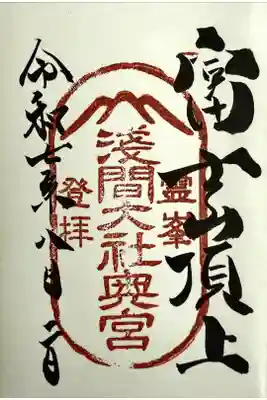 富士山頂上
霊峯
淺間大社奥宮
登拝
令和七年八月二日